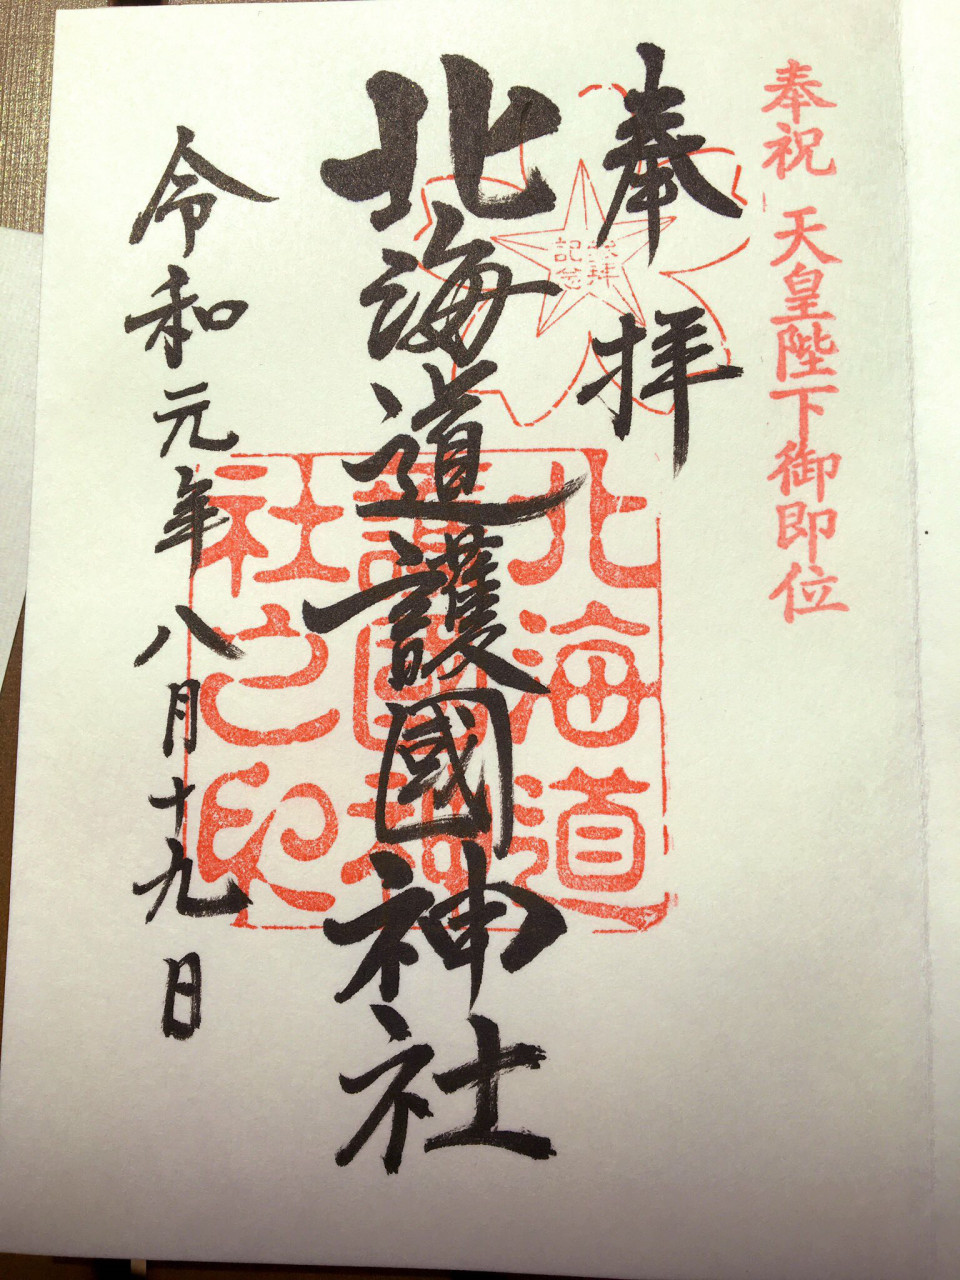 奉祝 天皇陛下御即位
奉拝
参拝
記念
北海道護國神社
北海道
護國神
社之印
令和元年八月十九日